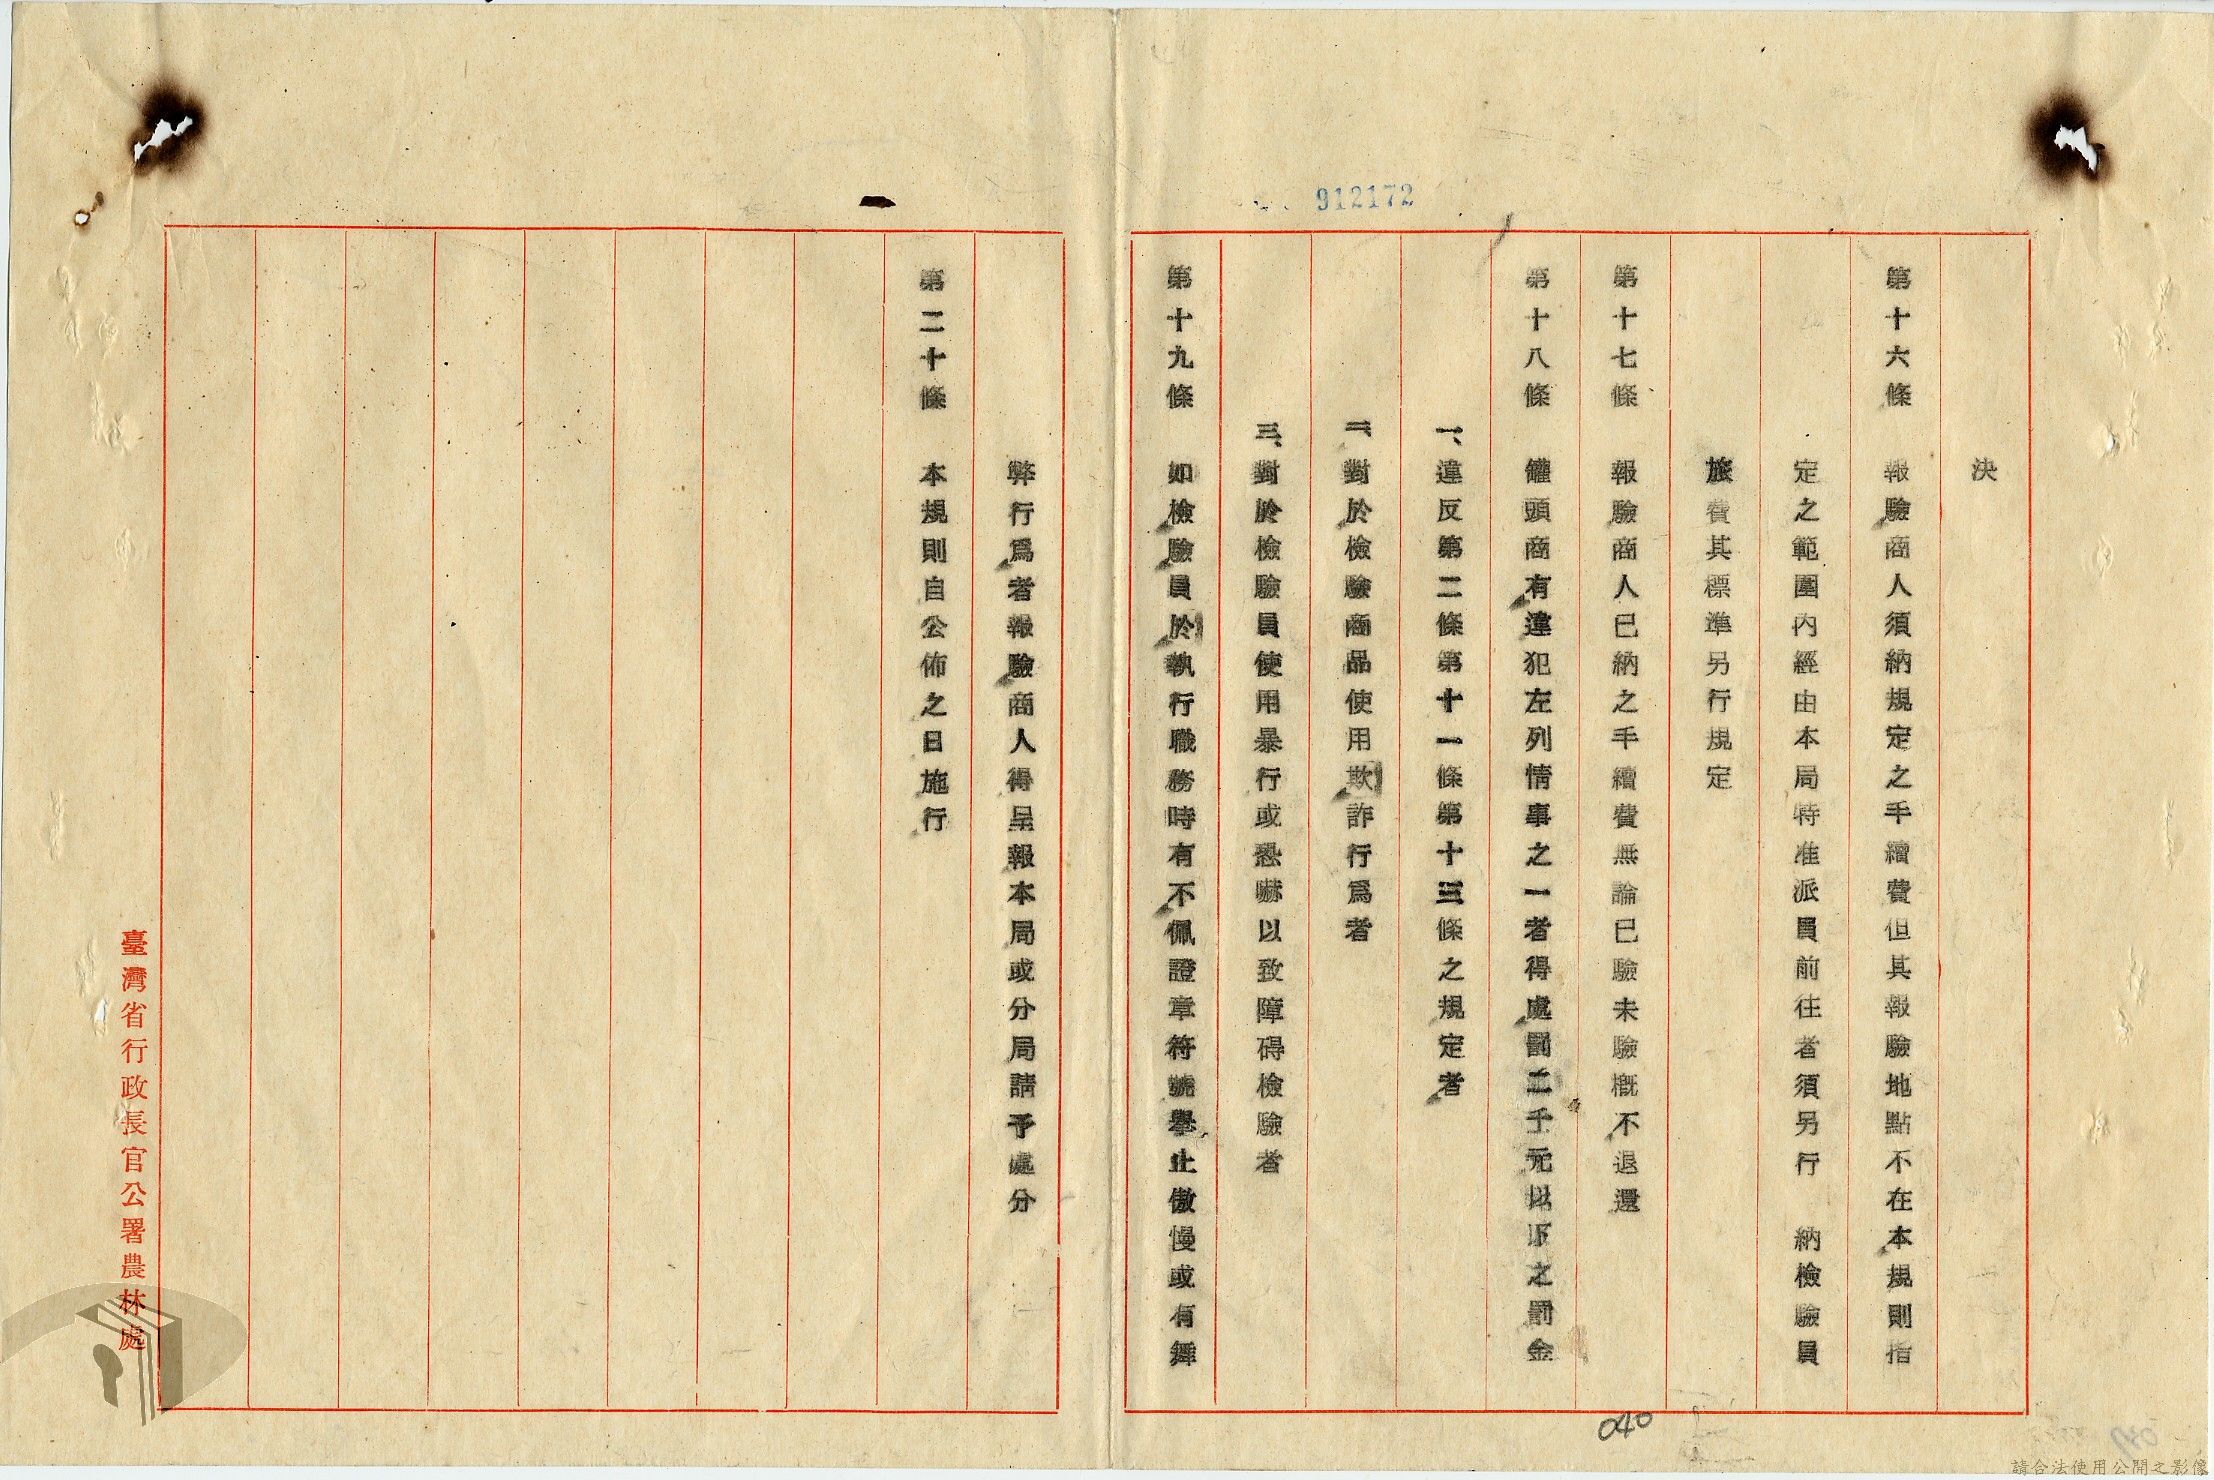 912172
決
第十六條　報驗商人須納規定之手續費但其報驗地點不在本規則指
定之範圍內經由本局特准派員前往者須另行　納檢驗員
旅費其標準另行規定
第十七條　報驗商人已納之手續費無論已驗未驗概不退還
第十八條　罐頭商有違犯左列情事之一者得處罰二千元以下之罰金
一、違反第二條第十一條第十三條之規定者
二、對於檢驗商品使用欺詐行爲者
三、對於檢驗員使用暴行或恐嚇以致障碍檢驗者
第十九條　如檢驗員於執行職務時有不佩證章符號擧止傲慢或有舞
弊行爲者報驗商人得呈報本局或分局請予處分
第二十條　本規則自公佈之日施行
臺灣省行政長官公署農林處
040
請合法使用公開之影像